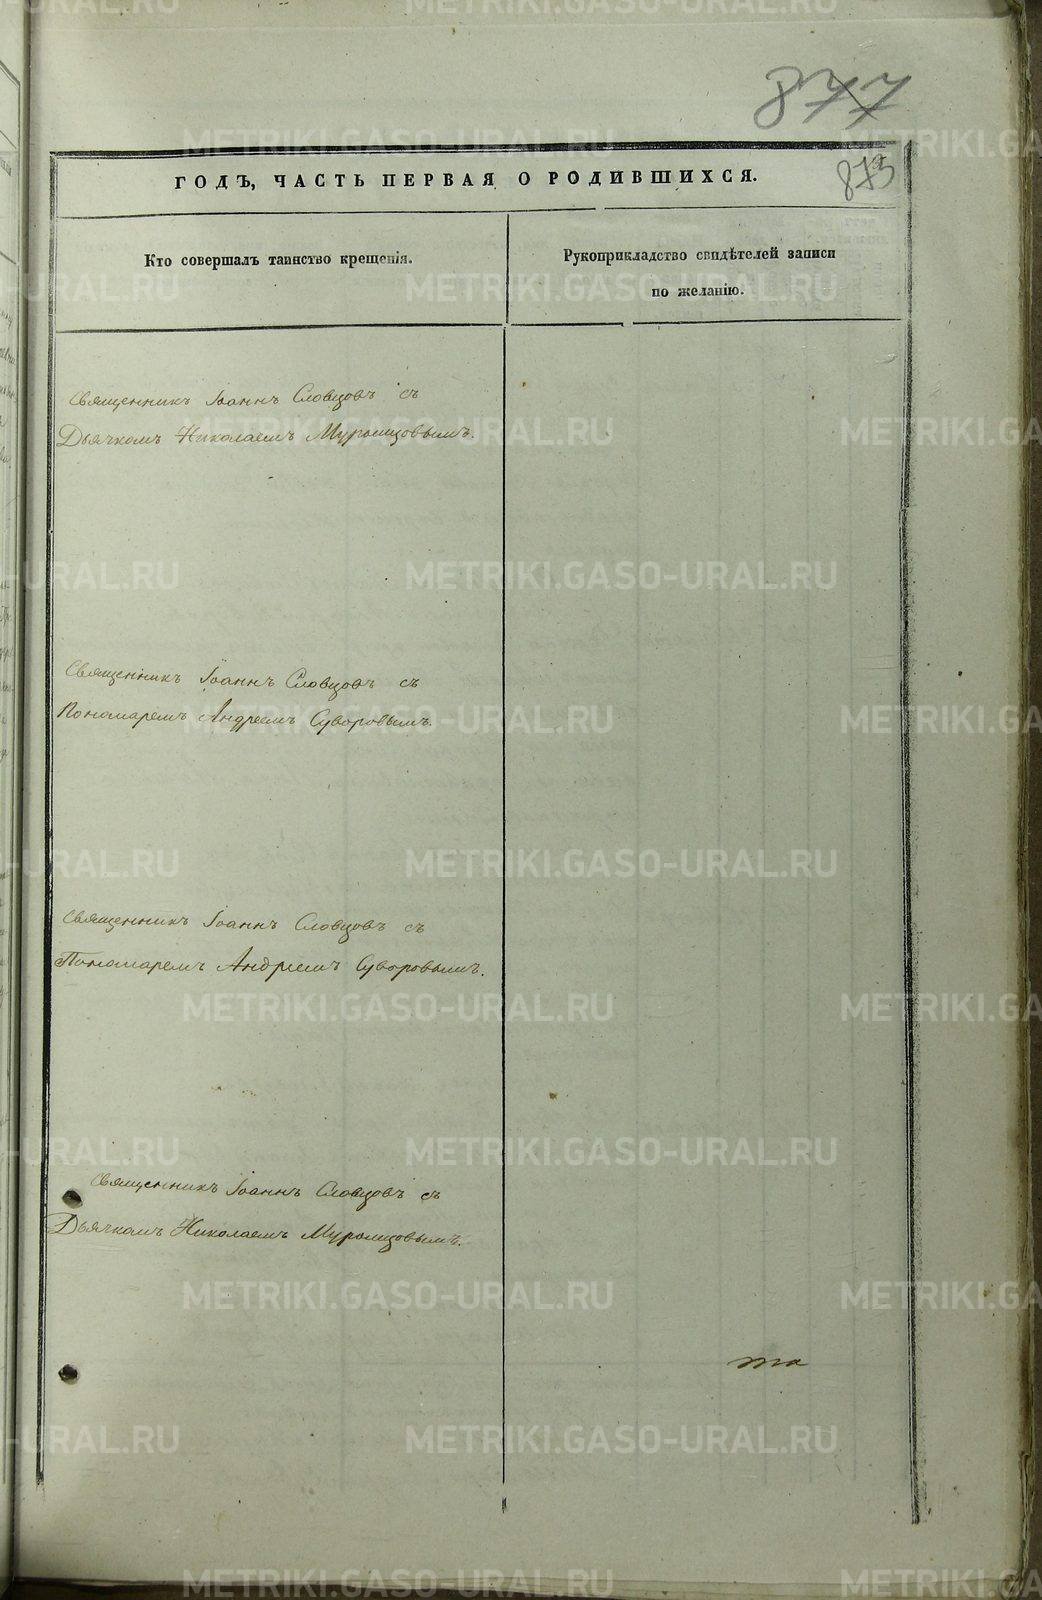 877
873
ГОДЪ, ЧАСТЬ ПЕРВАЯ О РОДИВШИХСЯ.
Кто совершалъ таинство крещенія.
Рукоприкладство свидѣтелей записи
по желанію.
Священникъ Іоаннъ Словцовъ съ
Дьячкомъ Николаемъ Муромцовымъ.
Священникъ Іоаннъ Словцовъ съ
Пономаремъ Андреемъ Суворовымъ.
Священникъ Іоаннъ Словцовъ съ
Пономаремъ Андреемъ Суворовымъ.
Священникъ Іоаннъ Словцовъ съ
Дьячкомъ Николаемъ Муромцовымъ.
та
METRIKI.GASO-URAL.RU